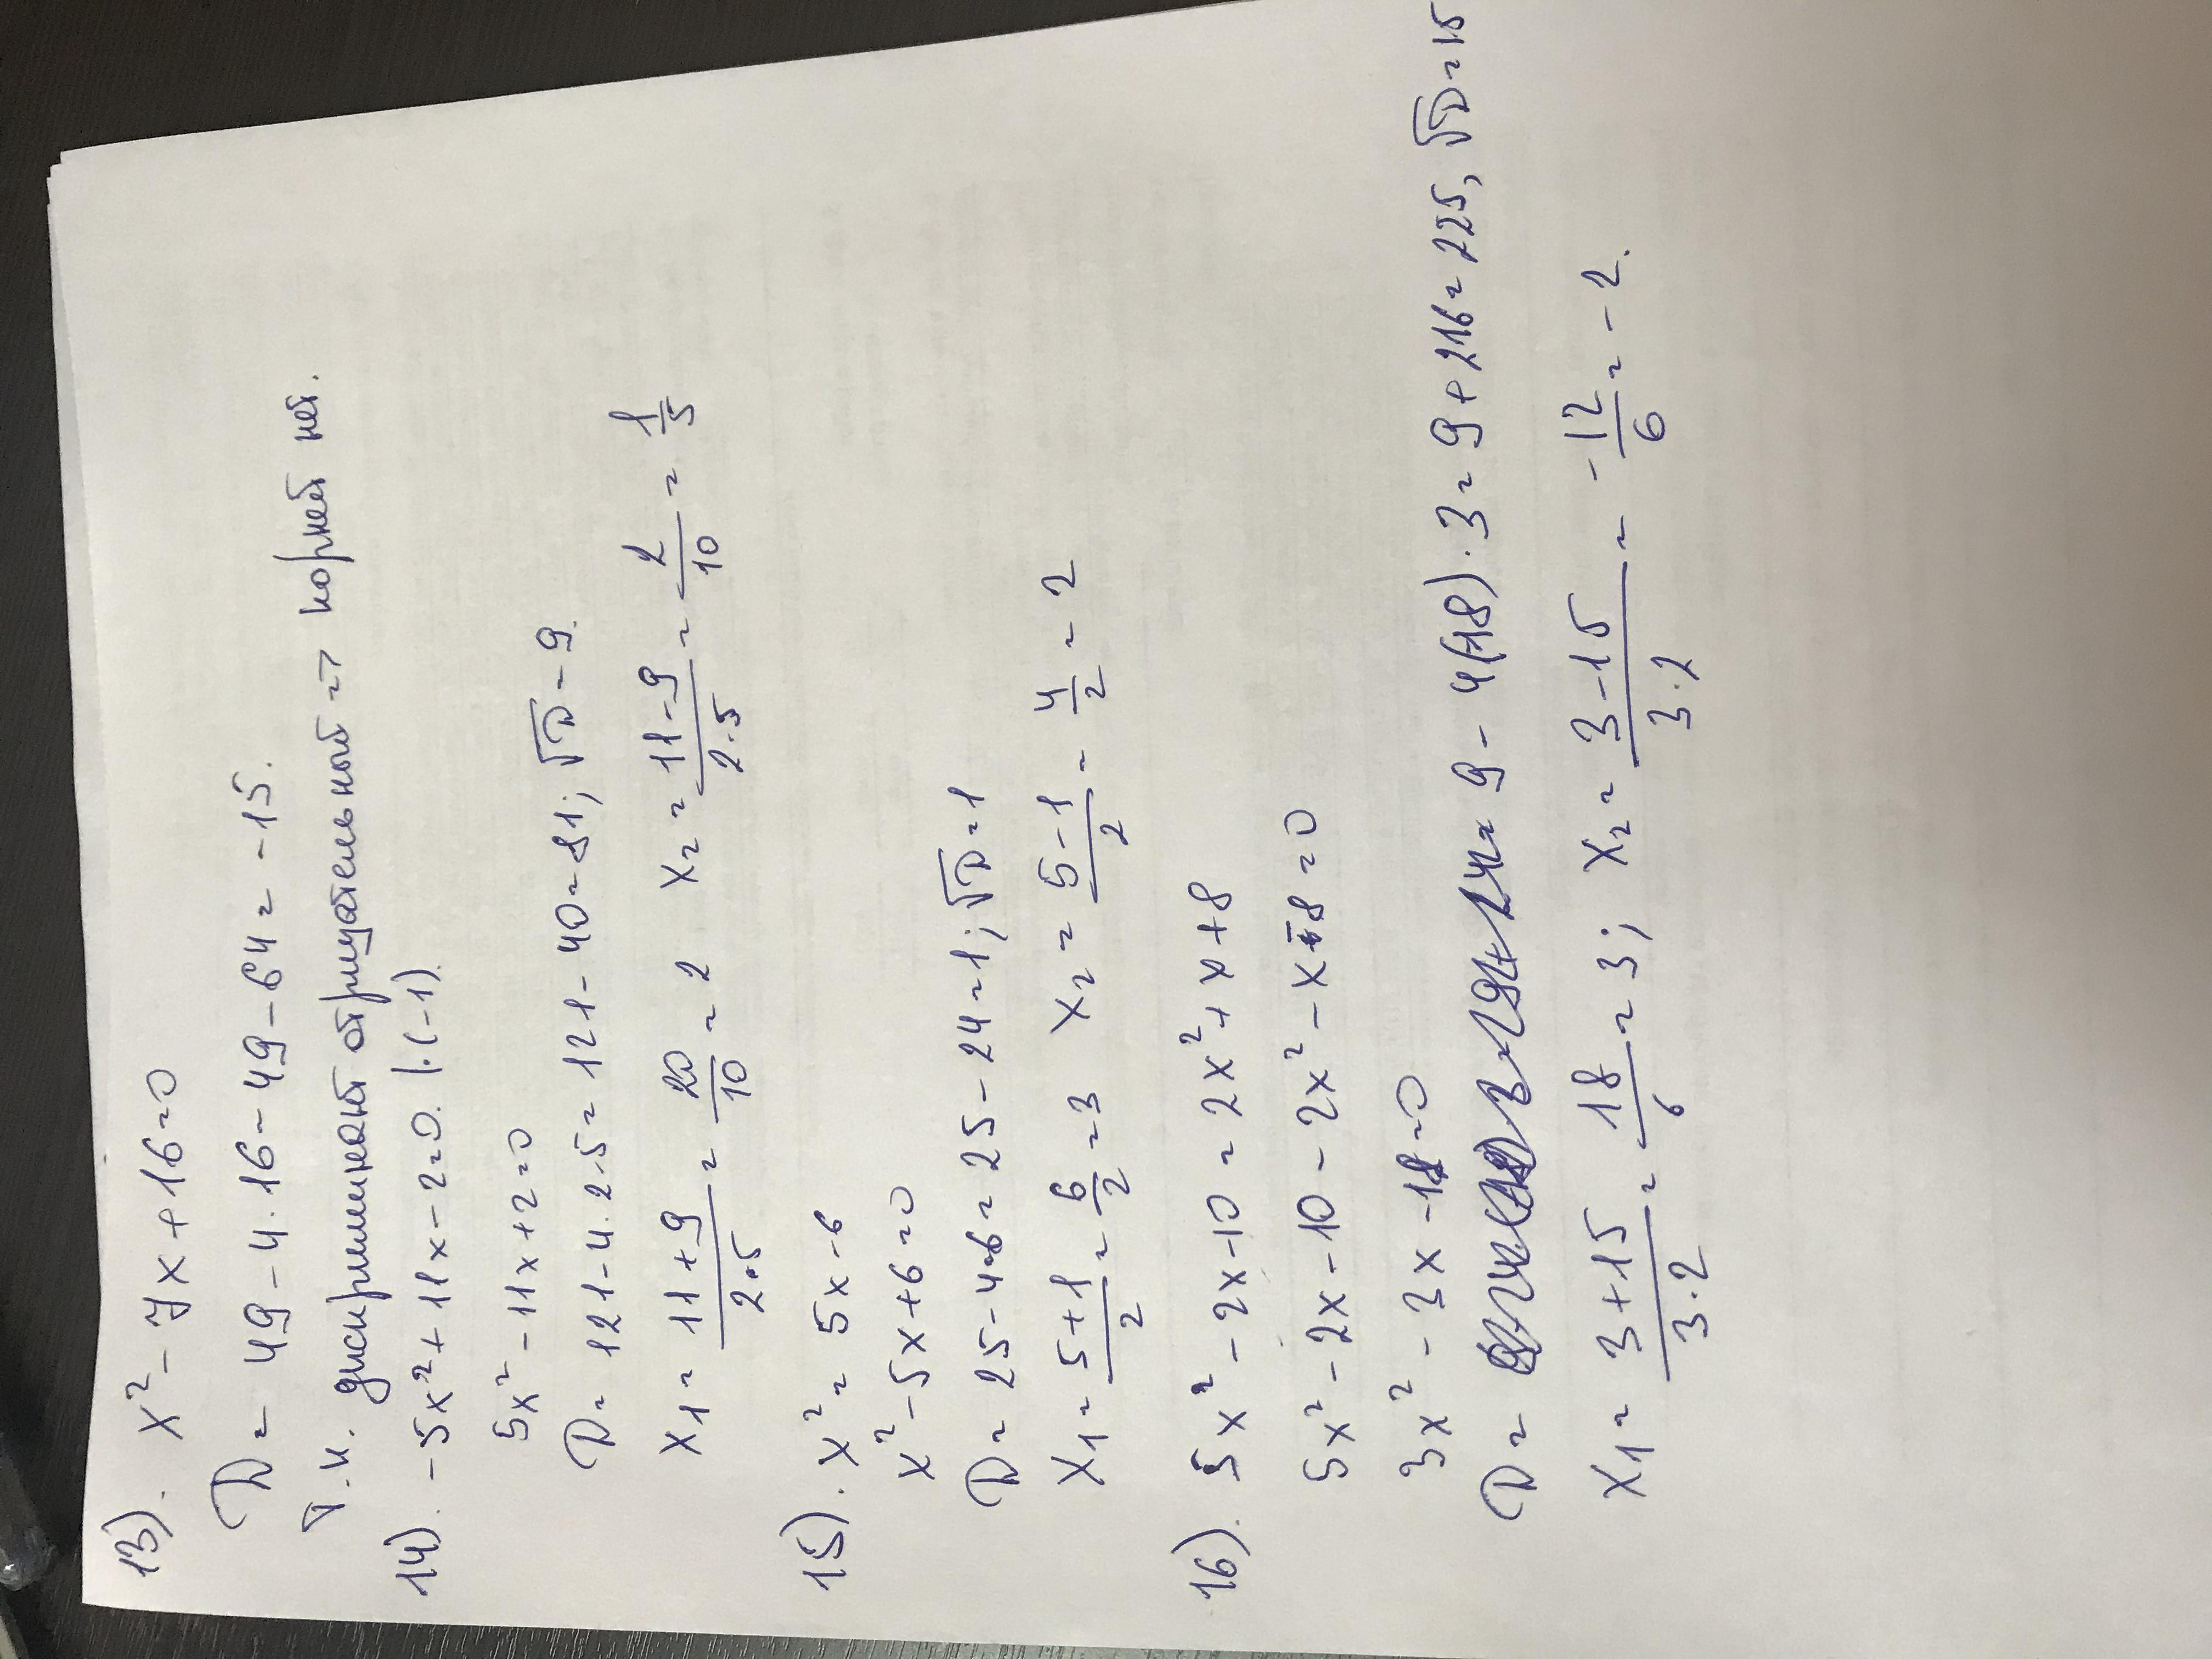 13). x² - 7x + 16 = 0
D = 49 - 4 · 16 = 49 - 64 = -15.
Т.к. дискриминант отрицательный => корней нет.
14). -5x² + 11x - 2 = 0. |·(-1)
5x² - 11x + 2 = 0
D = 121 - 4·2·5 = 121 - 40 = 81; √D = 9.
x₁ = (11 + 9)/(2·5) = 20/10 = 2 x₂ = (11 - 9)/(2·5) = 2/10 = 1/5
15). x² = 5x - 6
x² - 5x + 6 = 0
D = 25 - 4·6 = 25 - 24 = 1; √D = 1
x₁ = (5 + 1)/2 = 6/2 = 3 x₂ = (5 - 1)/2 = 4/2 = 2
16). 5x² - 2x - 10 = 2x² + x + 8
5x² - 2x - 10 - 2x² - x - 8 = 0
3x² - 3x - 18 = 0
D = 9 - 4(-18) · 3 = 9 + 216 = 225, √D = 15
x₁ = (3 + 15)/(3·2) = 18/6 = 3; x₂ = (3 - 15)/(3·2) = -12/6 = -2.